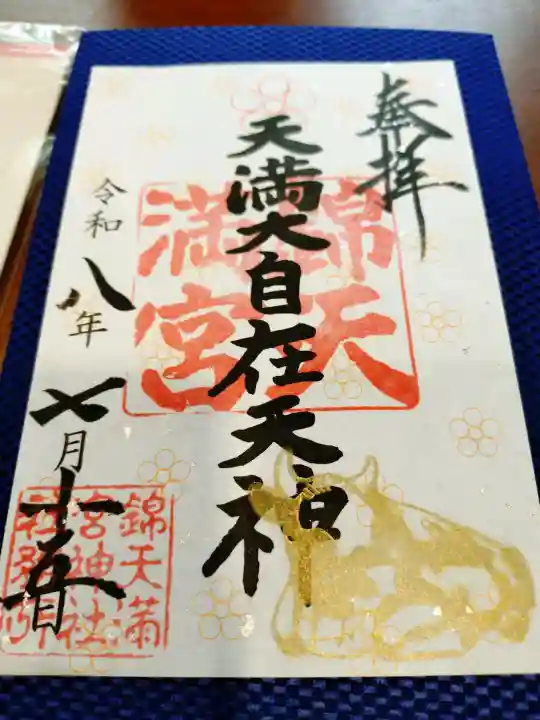 奉拝
天満大自在天神
錦天
満宮
令和八年七月十五日
錦天満
宮神社
社務所印